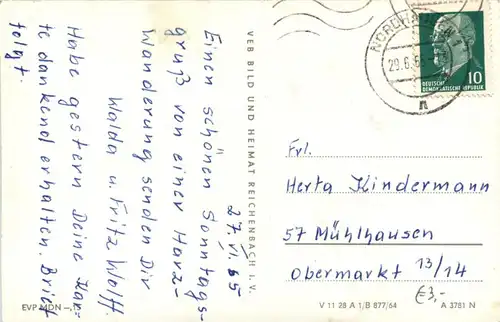 27. VI. 65
Einen schönen Sonntags-
gruß von einer Harz-
Wanderung senden Dir
Walda u. Fritz Wolff.
Habe gestern Deine Kar-
te dankend erhalten. Brief
folgt.
VEB BILD UND HEIMAT REICHENBACH I. V.
EVP MDN
NORDHAUSEN
29.6.65
DEUTSCHE
DEMOKRATISCHE REPUBLIK
10
Frl.
Herta Kindermann
57 Mühlhausen
Obermarkt 13/14
€3,-
V 11 28 A 1/B 877/64 A 3781 N